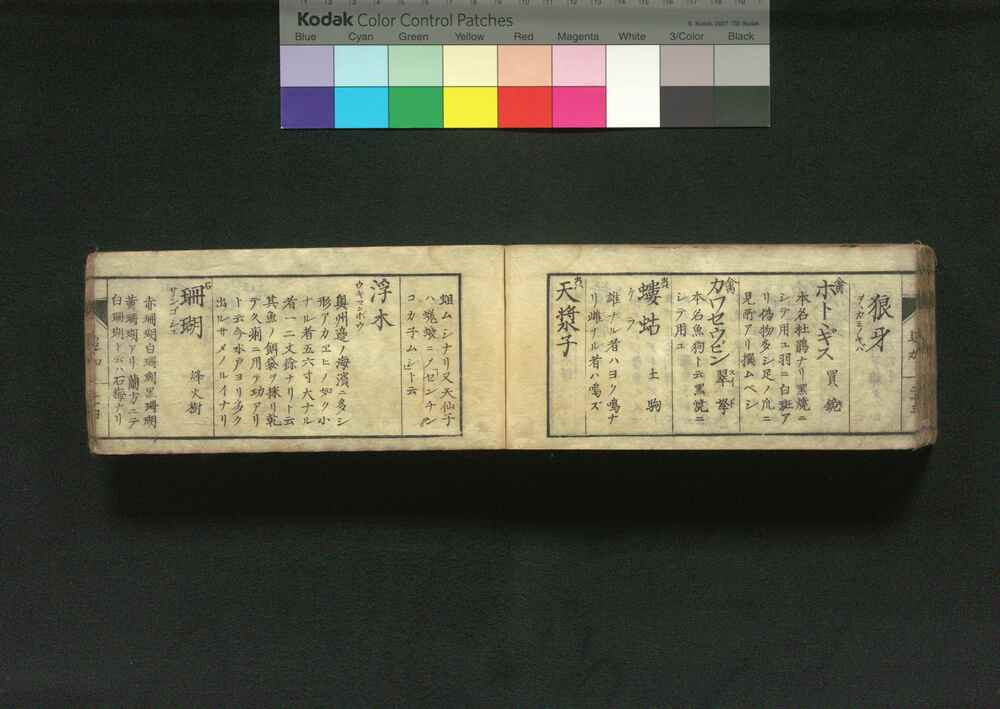 Kodak Color Control Patches
Blue Cyan Green Yellow Red Magenta White 3/Color Black
狼牙
禽
ホトヽギス
本名杜鵑ナリ黒焼ニ
シテ用ユ羽ニ白斑ア
リ偽物多シ足ノ爪ニ
見所アリ撰ムベシ
禽
カワセウビン 翠
本名魚狗ト云黒焼ニ
シテ用ユ
螻蛄 土狗
雄ナル者ハヨク鳴ナ
リ雌ナル者ハ鳴ズ
天漿子
蛆ムシナリ又天仙子
ハ蟾蜍ニノセンチ
コカ子ムシト云
浮木
ウキマニボウ
奥州邉ノ海濱ニ多シ
形アカヱヒノ如ク小
ナル者五六寸大ナル
者一二丈餘ナリト云
其魚ノ餌袋ヲ採リ乾
テ久痢ニ用テ功アリ
ト云今水戸ヨリ多ク
出ルサメノルイナリ
珊瑚 烽火樹
サンゴジユ
赤珊瑚白珊瑚黒珊瑚
黄珊瑚アリ蘭方ニテ
白珊瑚ト云ハ石梅ナリ